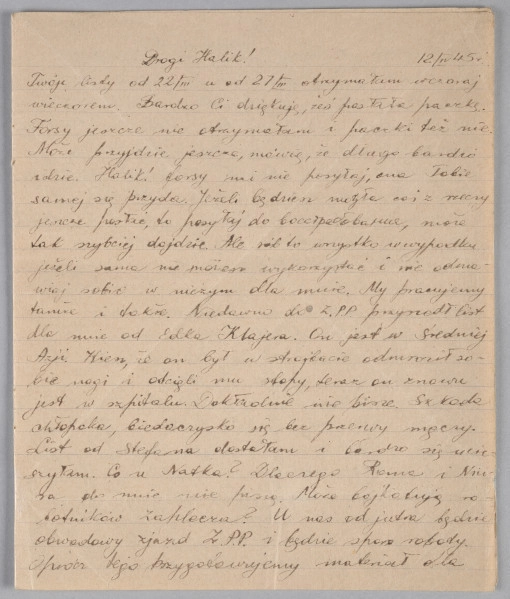 Drogi Halik! 12/IV 45 r.
Twoje listy od 22/III i od 27/III otrzymałam wczoraj
wieczorem. Bardzo Ci dziękuję, żeś posłała paczkę.
Forsy jeszcze nie otrzymałam i paczki też nie.
Może przyjdzie jeszcze, mówię, że długo bardzo
idzie. Halik! Forsy mi nie posyłaj, ona Tobie
samej się przyda. Jeżeli będziesz miała coś z rzeczy
jeszcze posłać, to posyłaj do może
tak szybciej dojdzie. Ale rób to wszystko w wypadku
jeżeli sama nie możesz wykorzystać i nie odma-
wiaj sobie w niczym dla mnie. My pracujemy
tutaj i dobrze. Niedawno do Z.P.P. przyszedł list
dla mnie od Edka Klajera. On jest w Średniej
Azji. Wiesz, że on był w odmroził so-
bie nogi i odcięli mu stopy, teraz on znowu
jest w szpitalu. Dokładnie nie pisze. Szkoda
chłopaka, biedaczysko się bez przerwy męczy.
List od Stefana dostałam i bardzo się ucie-
szyłam. Co u Natka? Dlaczego Roma i Niu-
sia do mnie nie piszą. Może bojkotują ro-
botników zaplecza? U nas od jutra będzie
obwodowy zjazd Z.P.P. i będzie sporo roboty.
Oprócz tego przygotowujemy materiał dla